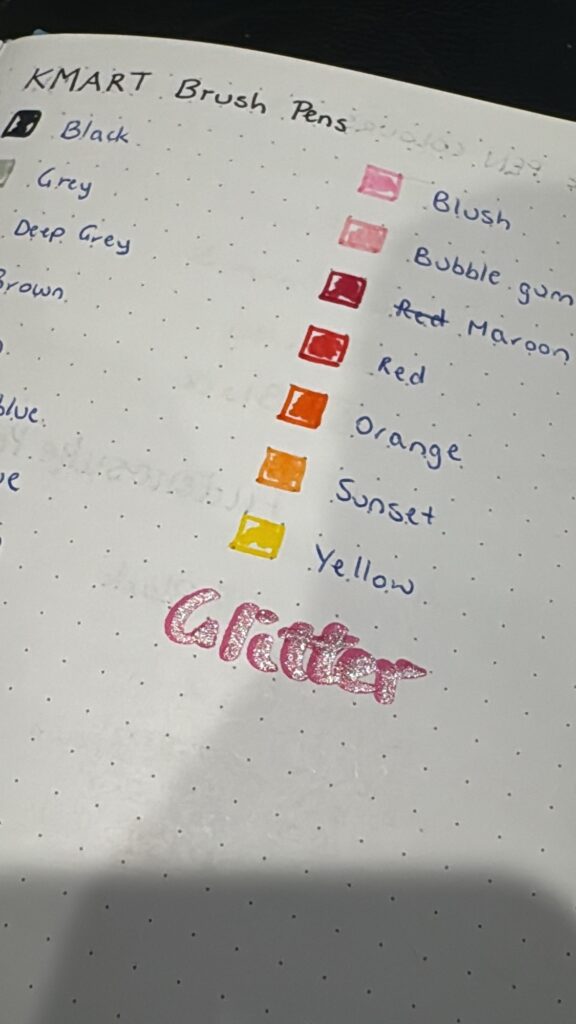 KMART Brush Pens
Black
Grey
Deep Grey
Brown
blue
Blush
Bubble gum
Red Maroon
Red
Orange
Sunset
Yellow
Glitter